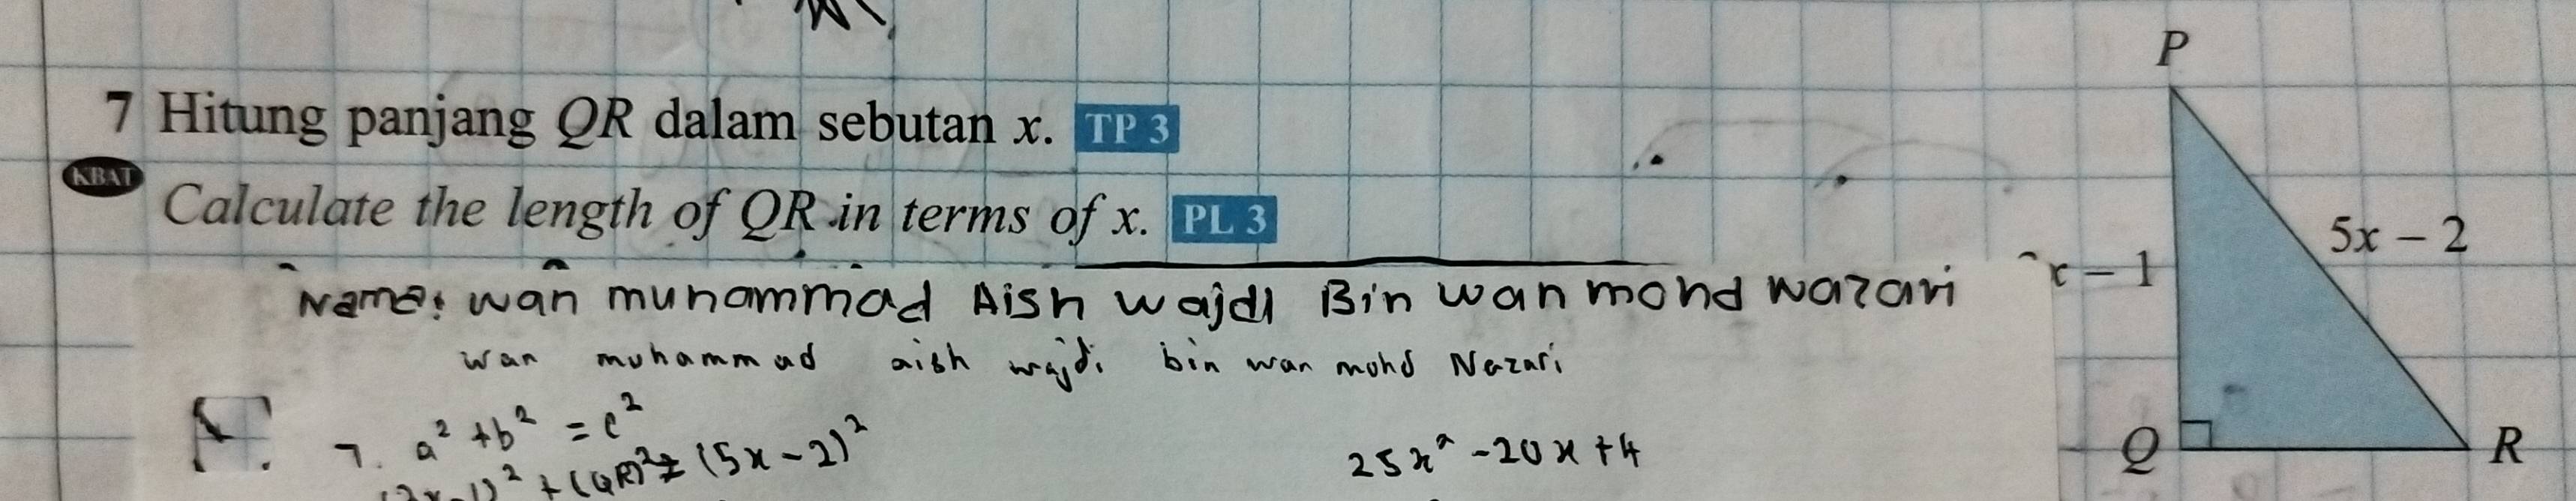 7 Hitung panjang QR dalam sebutan x. TP 3
KBAT
Calculate the length of QR in terms of x. PL 3
P
5x – 2
x – 1
Q
R
Name: wan muhammad Aish wajdi Bin wan mohd wazari
wan muhammad aish wajdi bin wan mohd Nazari
7. a² + b² = c²
+ (QR)² = (5x – 2)²
25x² – 20x + 4